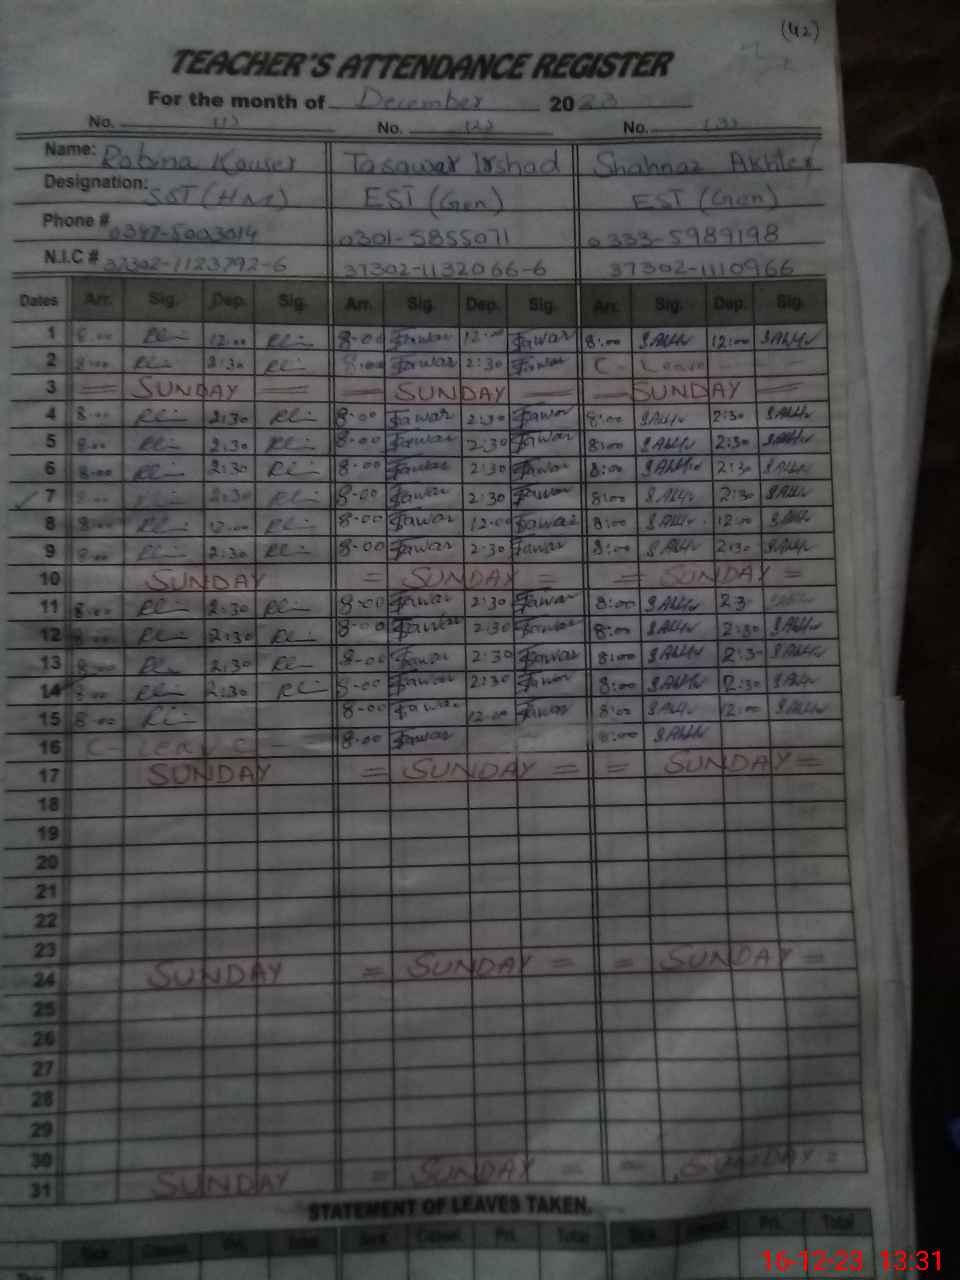 (42)
TEACHER'S ATTENDANCE REGISTER
For the month of December 2023
No. (1) No. (2) No. (3)
Name: Robina Kouser Tasawar Irshad Shahnaz Akhter
Designation: SST (HM) EST (Gen) EST (Gen)
Phone # 0347-5003014 0301-5855071 0333-5989198
N.I.C # 37302-1123792-6 37302-1132066-6 37302-1110966
Dates Arr. Sig. Dep. Sig. Arr. Sig. Dep. Sig. Arr. Sig. Dep. Sig.
1 8:00 12:00 8-00 Tawar 12:00 Tawar 8:00 12:00
2 8:00 2:30 8:00 Tawar 2:30 Tawar C- Leave
3 = SUNDAY = = SUNDAY = = SUNDAY =
4 8:00 2:30 8-00 Tawar 2:30 Tawar 8:00 2:30
5 8:00 2:30 8-00 Tawar 2:30 Tawar 8:00 2:30
6 8:00 2:30 8-00 Tawar 2:30 Tawar 8:00 2:30
7 8:00 2:30 8-00 Tawar 2:30 Tawar 8:00 2:30
8 8:00 12:00 8-00 Tawar 12:00 Tawar 8:00 12:00
9 8:00 2:30 8-00 Tawar 2:30 Tawar 8:00 2:30
10 SUNDAY = SUNDAY = = SUNDAY =
11 8:00 2:30 8-00 Tawar 2:30 Tawar 8:00 2:3
12 8:00 2:30 8-00 Tawar 2:30 Tawar 8:00 2:30
13 8:00 2:30 8-00 Tawar 2:30 Tawar 8:00 2:30
14 8:00 2:30 8-00 Tawar 2:30 Tawar 8:00 2:30
15 8-00 8-00 Tawar 12:00 Tawar 8:00 12:00
16 C- Leave - 8-00 Tawar 8:00
17 SUNDAY = SUNDAY = = SUNDAY =
18
19
20
21
22
23
24 SUNDAY = SUNDAY = = SUNDAY =
25
26
27
28
29
30
31 SUNDAY = SUNDAY = = SUNDAY =
STATEMENT OF LEAVES TAKEN.
Sick Casual Pri. Total Sick Casual Pri. Total Sick Casual Pri. Total
16-12-23 13:31